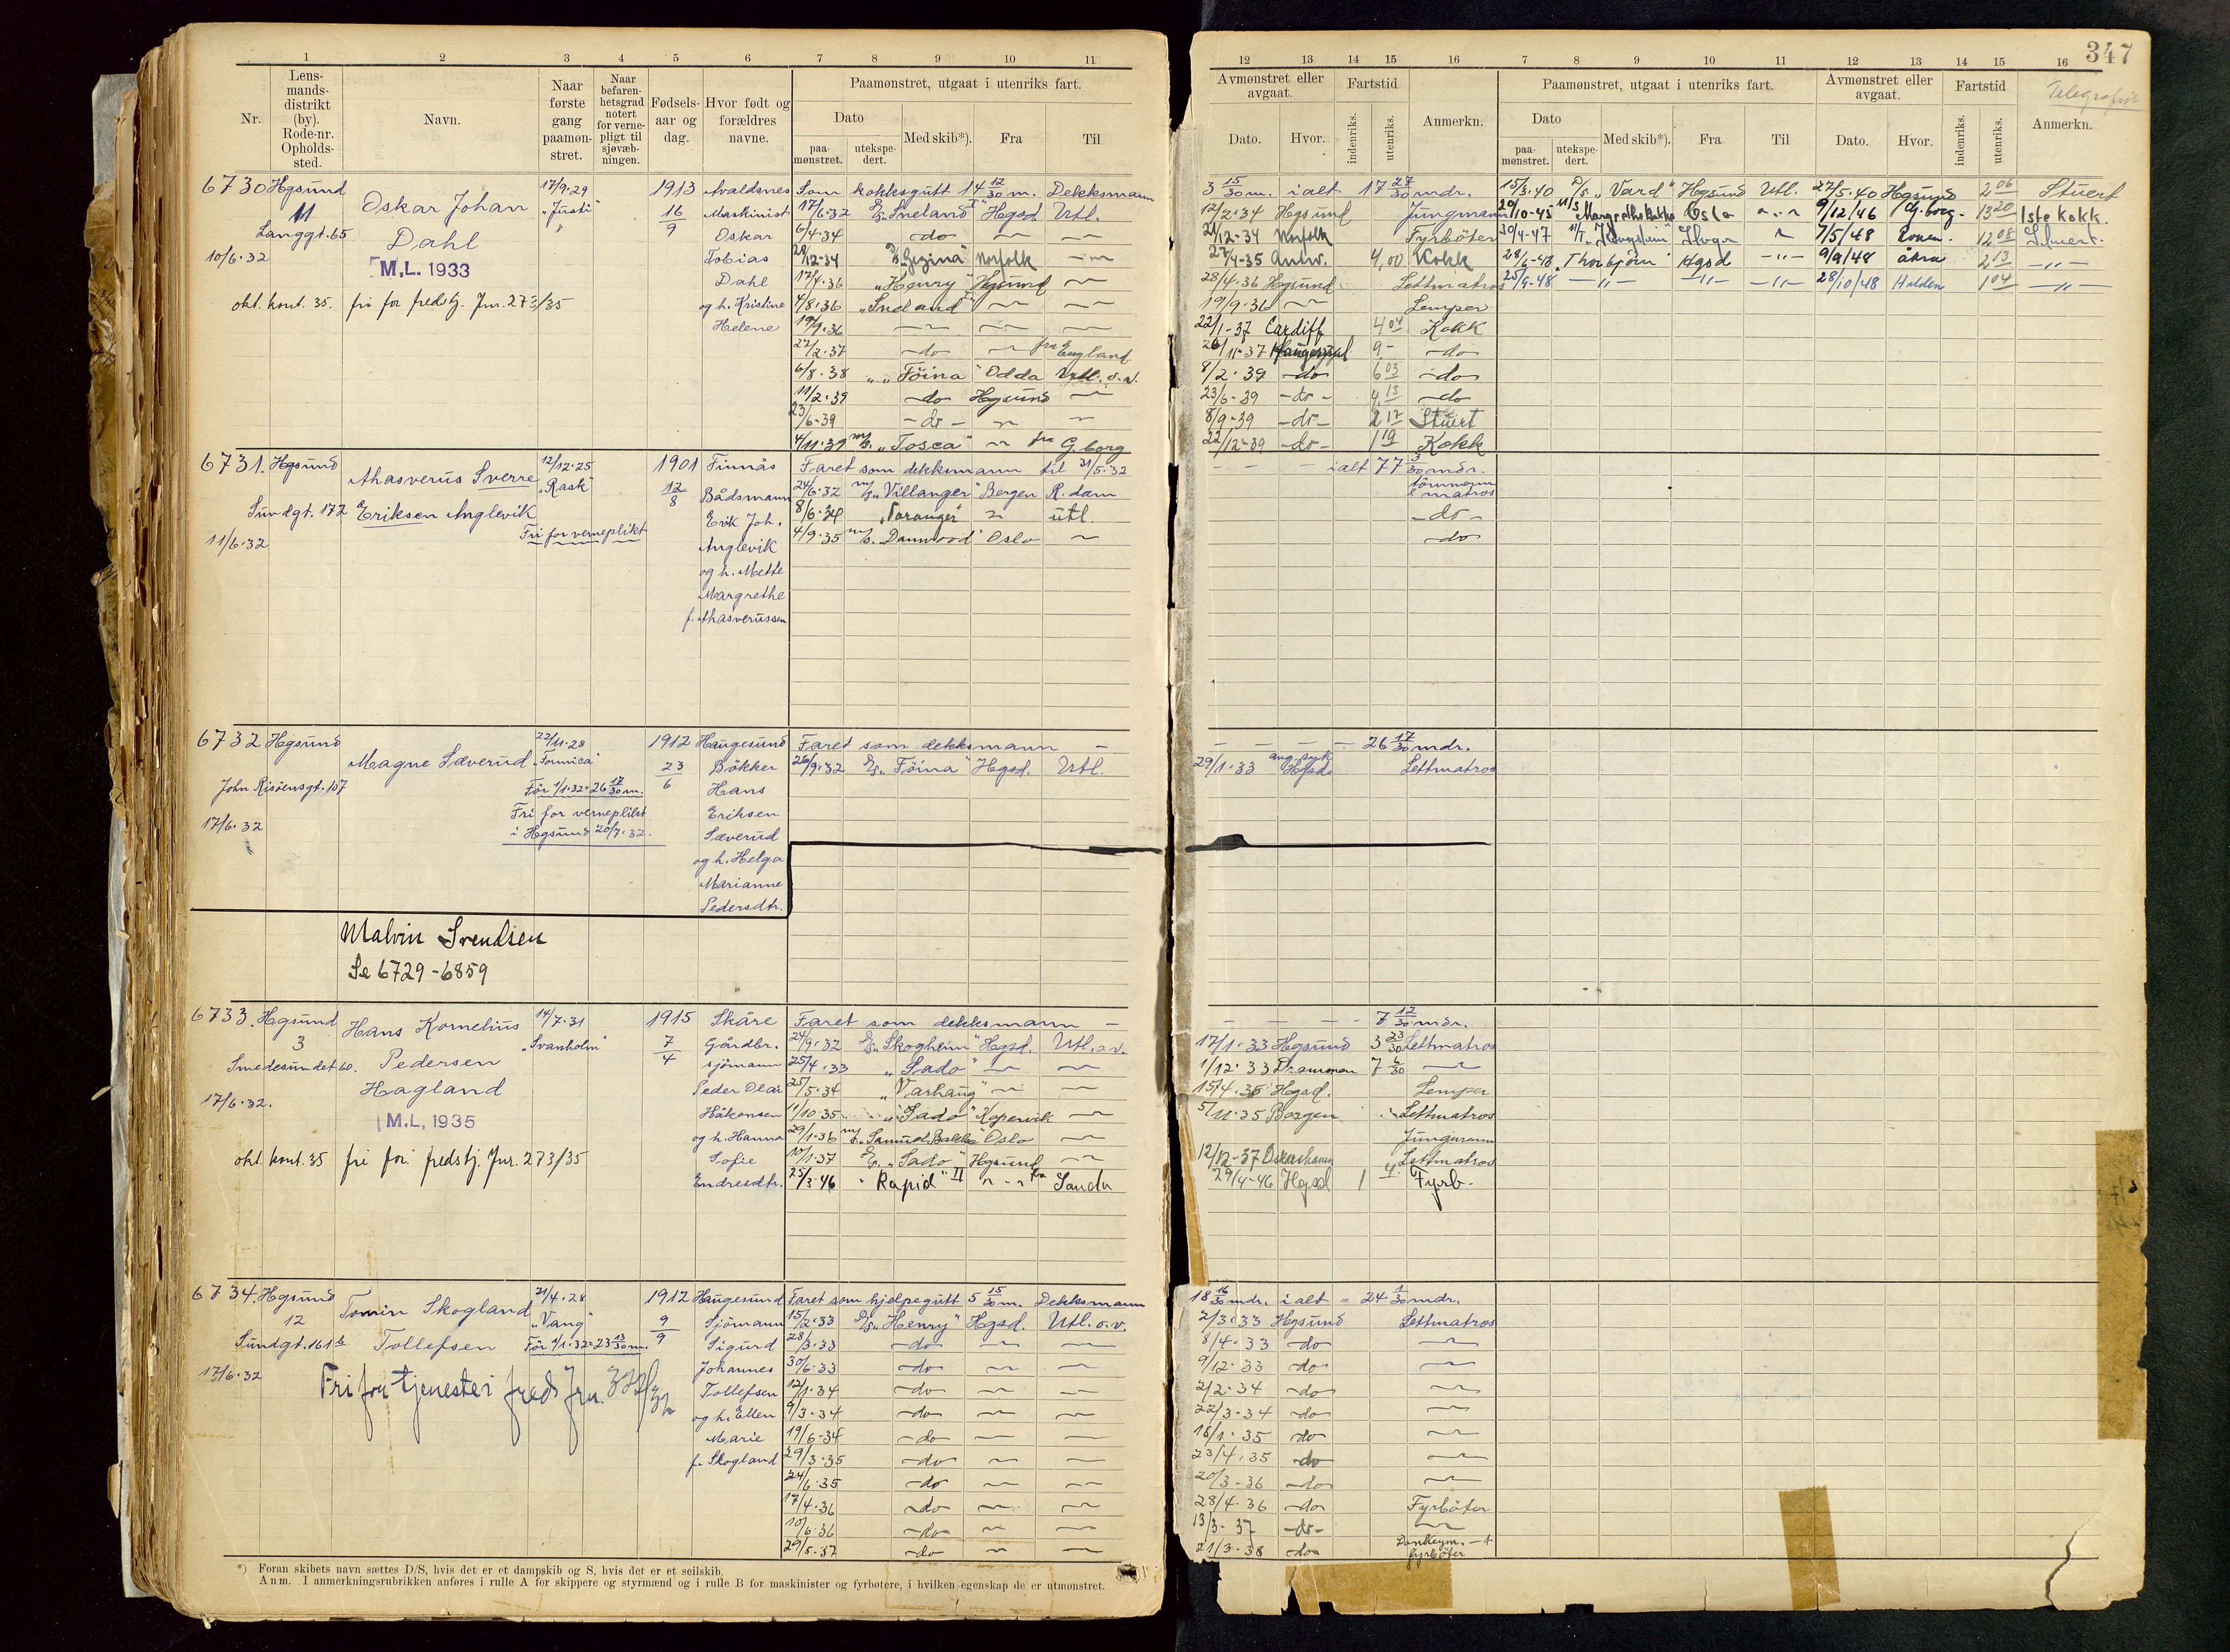 347
1 2 3 4 5 6 7 8 9 10 11
12 13 14 15 16 7 8 9 10 11 12 13 14 15 16
Nr.
Lens-
mands-
distrikt
(by).
Rode-nr.
Opholds-
sted.
Navn.
Naar
første
gang
paamøn-
stret.
Naar
befaren-
hetsgrad
notert
for verne-
pligt til
sjøvæb-
ningen.
Fødsels-
aar og
dag.
Hvor født og
forældres
navne.
Paamønstret, utgaat i utenriks fart.
Dato
paa-
mønstret.
utekspe-
dert.
Med skib*).
Fra
Til
Avmønstret eller
avgaat.
Dato.
Hvor.
Fartstid
indenriks.
utenriks.
Anmerkn.
Paamønstret, utgaat i utenriks fart.
Dato
paa-
mønstret.
utekspe-
dert.
Med skib*).
Fra
Til
Avmønstret eller
avgaat.
Dato.
Hvor.
Fartstid
indenriks.
utenriks.
Telegrafist
Anmerkn.
6730 Hgsund
11
Langgt. 65
10/6.32
Oskar Johan
Dahl
M.L. 1933
okt. kont. 35. fri for fredstj. Jnr. 273/35
17/9.29
"Justi"
1913
16/9
Avaldsnes
Maskinist
Oskar
Tobias
Dahl
og h. Kristine
Helene
Som kokksgutt 14 12/30 m. Dekksmann 3 15/30 m. ialt 17 27/30 mdr.
17/6.32 D/S "Sneland I" Hgsd Utl. 12/2.34 Hgsund Jungmann
6/4.34 do 21/12-34 Norfolk Fyrböter
28/12-34 D/S "Gezina" Norfolk 27/4-35 Antw. 4,00 Kokk
17/4.36 "Henry" Hgsund 28/4.36 Hgsund Lettmatros
4/8.36 "Sneland" 19/9.36 Lemper
19/9.36 22/1-37 Cardiff 4 04 Kokk
27/2.37 do fra England 26/11-37 Haugesund 9- do
6/8.38 "Föina" Odda Utl. o.v. 8/2.39 do 6 03 do
11/2.39 do Hgsund 23/6-39 do 4 13 do
23/6-39 do 8/9-39 do 2 17 Stuert
4/11.39 M/S "Tosca" fra G.borg 22/12-39 do 1 19 Kokk
15/3.40 D/S "Vard" Hgsund Utl. 27/5.40 Hgsund 2 06 Stuert
20/10-45 M/S Margrethe Bakke Oslo 9/12/46 G.borg 13 20 1ste kokk.
30/4-47 M/T "Kongstein" 7/5/48 12 08 Stuert.
28/6-48 "Thorbjörn" Hgsd 9/9/48 åkra 2 13
25/9-48 28/10/48 Halden 1 04
6731. Hgsund
Sundgt. 172
11/6.32
Ahasverus Sverre
Eriksen Anglevik
12/12.25
"Rask"
Fri for verneplikt
1901
12/8
Finnås
Bådsmann
Erik Joh.
Anglevik
og h. Mette
Margrethe
f. Ahasverussen
Faret som dekksmann til 31/5.32 ialt 77 3/30 mdr.
24/6.32 M/S "Villanger" Bergen R.dam tömmerm. & matros
8/6.34 "Taranger" utl. do
4/9.35 M/S "Danwood" Oslo do
6732 Hgsund
John Risöensgt. 107
17/6.32
Magne Sæverud
22/11.28
"Tonnica"
För 1/1.32= 26 17/30 m.
Fri for verneplikt
i Hgsund 20/7.32.
1912
23/6
Haugesund
Bökker
Hans
Eriksen
Sæverud
og h. Helga
Marianne
Pedersdtr.
Faret som dekksmann 26 17/30 mdr.
26/9.32 D/S "Föina" Hgsd. Utl. 29/1.33 Hgsd Lettmatros
Malvin Svendsen
Se 6729-6859
6733. Hgsund
3
Smedesundet 60.
17/6.32.
Hans Kornelius
Pedersen
Hagland
M.L. 1935
okt. kont. 35 fri for. fredstj. Jnr. 273/35
14/7.31
"Svanholm"
1915
7/4
Skåre
Gårdbr.
sjömann
Peder Olai
Håkonsen
og h. Hanna
Sofie
Endresdtr.
Faret som dekksmann 7 12/30 mdr.
24/9.32 D/S "Skogheim" Hgsd. Utl. o.v. 17/1.33 Hgsund 3 23/30 Lettmatros
25/4.33 "Sado" 1/12.33 Drammen 7 6/30
25/5.34 "Varhaug" 15/4.35 Hgsd. Lemper
11/10.35 "Sado" Kopervik 5/11.35 Bergen Lettmatros
29/1.36 M/S "Samuel Bakke" Oslo Jungmann
10/1.37 D/S "Sado" Hgsund 12/12-37 Oskarshamn Lettmatros
25/3-46 "Rapid" II fra Sauda 29/4-46 Hgsd 1 4 Fyrb.
6734. Hgsund
12
Sundgt. 161 b
17/6.32
Tomin Skogland
Tollefsen
21/4.28
"Vang"
För 1/1.32= 23 13/30 m.
Fri for tjeneste i fred Jnr.
1912
9/9
Haugesund
Sjömann
Sigurd
Johannes
Tollefsen
og h. Ellen
Marie
f. Skogland
Faret som hjelpegutt 5 15/30 m. Dekksmann 18 16/30 mdr. ialt = 24 1/30 mdr.
15/2.33 D/S "Henry" Hgsd. Utl. o.v. 2/3.33 Hgsund Lettmatros
28/3.33 do 8/4.33 do
30/6.33 do 9/12.33 do
12/1.34 do 2/2.34 do
9/3.34 do 22/3-34 do
19/6-34 do 18/1.35 do
29/3.35 do 23/4.35 do
24/6.35 do 20/3-36 do
17/4.36 do 28/4.36 do Fyrböter
10/6.36 do 13/3-37 do
29/5-37 do 21/3-38 do Donkeym. + fyrböter
*) Foran skibets navn sættes D/S, hvis det er et dampskib og S, hvis det er et seilskib.
Anm. I anmerkningsrubrikken anføres i rulle A for skippere og styrmænd og i rulle B for maskinister og fyrbøtere, i hvilken egenskap de er utmønstret.